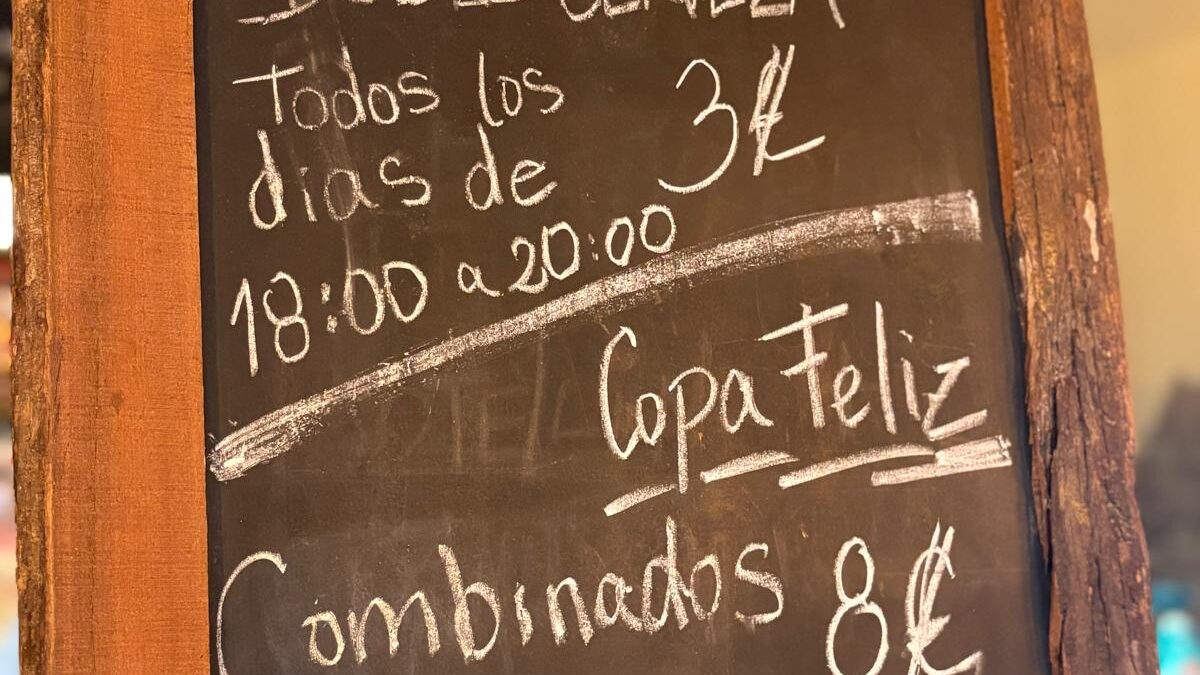 Todos los
días de 3€
18:00 a 20:00
Copa Feliz
Combinados 8€